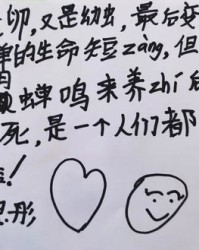 卵,又是幼虫,最后变
蝉的生命短zàng,但
蝉鸣来养zhí
死,是一个人们都
!
彤